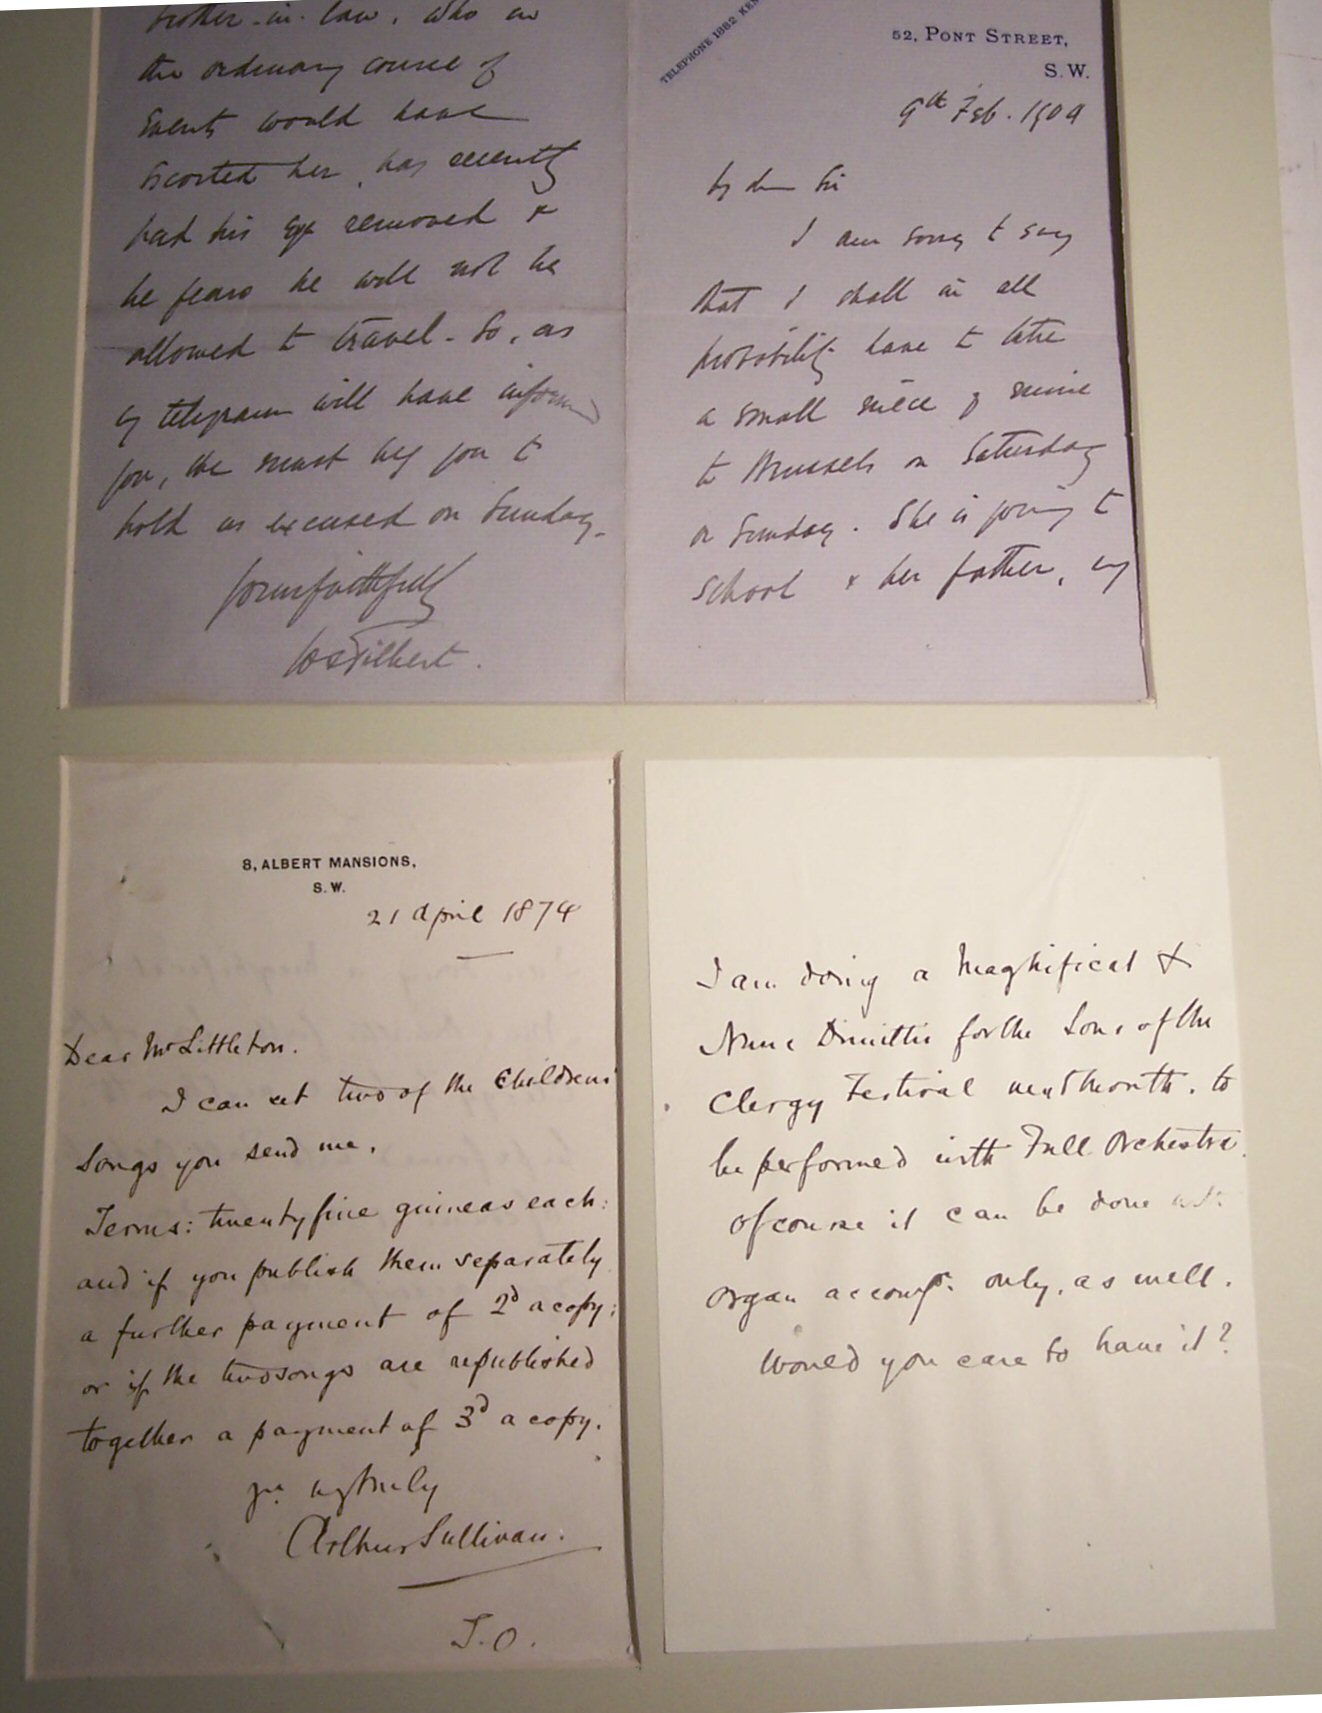 TELEPHONE 1882 KEN
52, PONT STREET,
S.W.
9th Feb. 1909
My dear Sir
I am sorry to say
that I shall in all
probability have to take
a small niece of mine
to Brussels on Saturday
or Sunday. She is going to
school & her father, my
brother-in-law, who in
the ordinary course of
events would have
escorted her, has recently
had his eye removed &
he fears he will not be
allowed to travel. So, as
my telegram will have informed
you, we must beg you to
hold us excused on Sunday.
Yours faithfully
WSGilbert.
8, ALBERT MANSIONS,
S.W.
21 April 1874
Dear Mr Littleton.
I can set two of the Childrens'
Songs you send me.
Terms: twenty five guineas each:
and if you publish them separately
a further payment of 2d a copy:
or if the two songs are republished
together a payment of 3d a copy.
Yrs vy truly
Arthur Sullivan.
T.O.
I am doing a Magnificat &
Nunc Dimittis for the Sons of the
Clergy Festival next month. to
be performed with Full Orchestra.
Of course it can be done with
organ accompt. only, as well.
Would you care to have it?